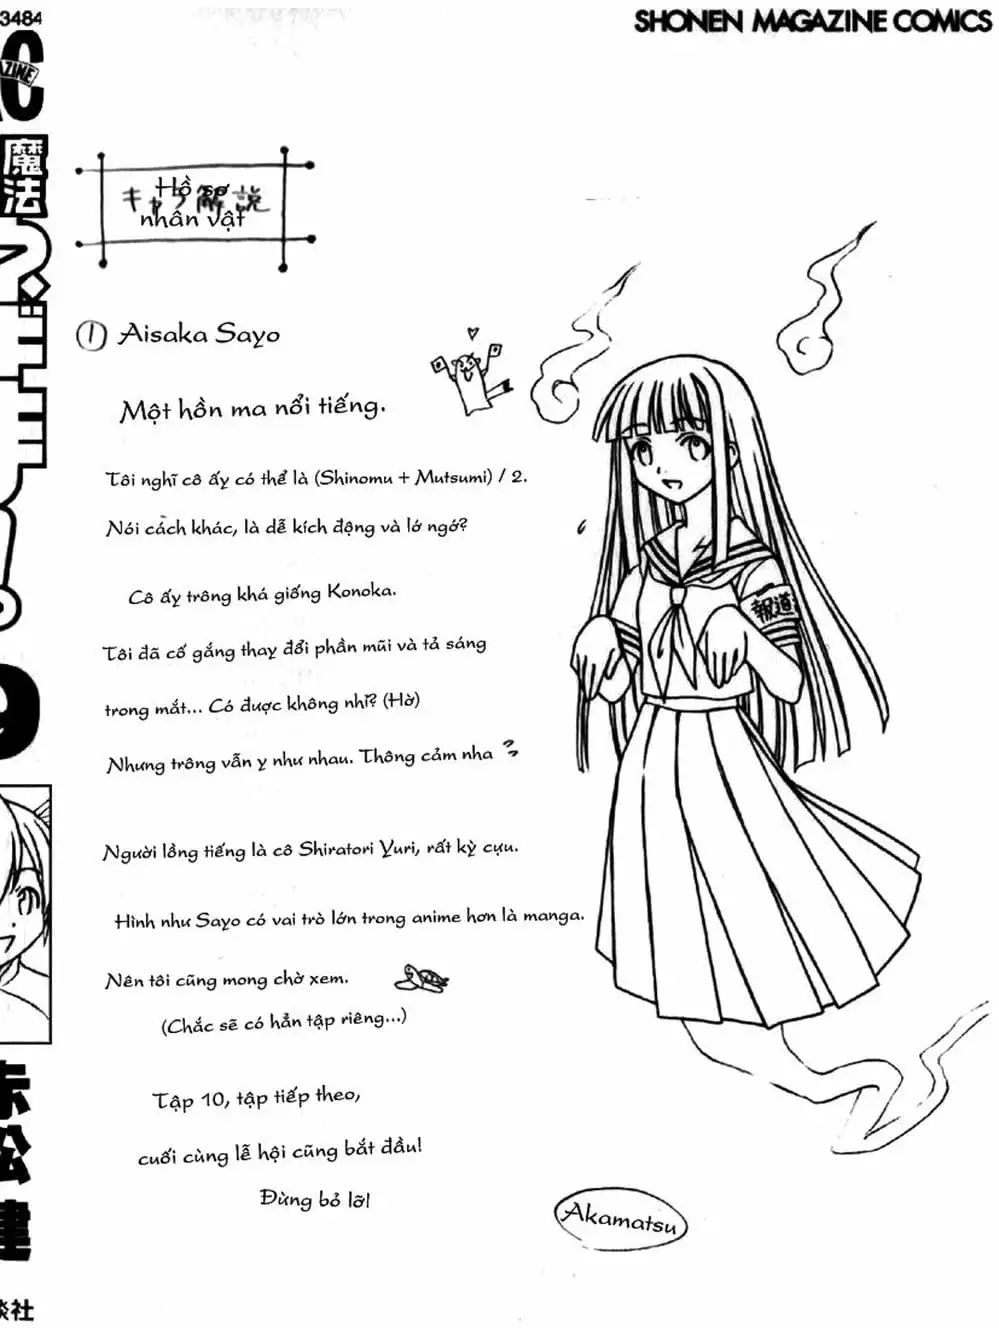 3484
SHONEN MAGAZINE COMICS
魔法
9
赤松健
談社
Hồ sơ
nhân vật
① Aisaka Sayo
Một hồn ma nổi tiếng.
Tôi nghĩ cô ấy có thể là (Shinomu + Mutsumi) / 2.
Nói cách khác, là dễ kích động và lớ ngớ?
Cô ấy trông khá giống Konoka.
Tôi đã cố gắng thay đổi phần mũi và tả sáng
trong mắt... Có được không nhỉ? (Hờ)
Nhưng trông vẫn y như nhau. Thông cảm nha
Người lồng tiếng là cô Shiratori Yuri, rất kỳ cựu.
Hình như Sayo có vai trò lớn trong anime hơn là manga.
Nên tôi cũng mong chờ xem.
(Chắc sẽ có hẳn tập riêng...)
Tập 10, tập tiếp theo,
cuối cùng lễ hội cũng bắt đầu!
Đừng bỏ lỡ!
報道
Akamatsu